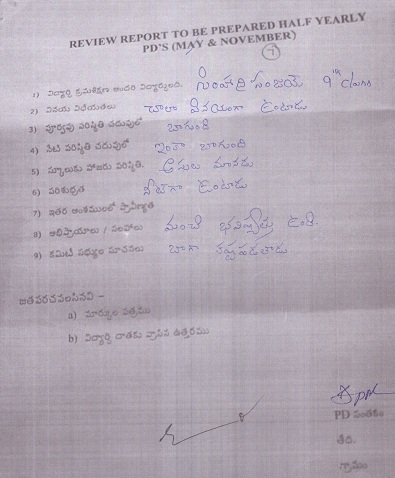 REVIEW REPORT TO BE PREPARED HALF YEARLY
PD'S (MAY & NOVEMBER)
7
1) విద్యార్థి క్రమశిక్షణ అందరి విద్యార్థులది. సింహాద్రి సంజయ్ 9th class
2) వినయ విధేయతలు చాలా వినయంగా ఉంటాడు
3) పూర్వపు పరిస్థితి చదువులో బాగుంది
4) నేటి పరిస్థితి చదువులో ఇంకా బాగుంది
5) స్కూలుకు హాజరు పరిస్థితి. అసలు మానడు
6) పరిశుభ్రత నీట్‌గా ఉంటాడు
7) ఇతర అంశములలో ప్రావీణ్యత
8) అభిప్రాయాలు / సలహాలు మంచి భవిష్యత్తు ఉంది.
9) కమిటీ సభ్యుల సూచనలు బాగా కష్టపడతాడు
జతపరచవలసినవి –
a) మార్కుల పత్రము
b) విద్యార్థి దాతకు వ్రాసిన ఉత్తరము
PD సంతకం
తేది.
గ్రామం